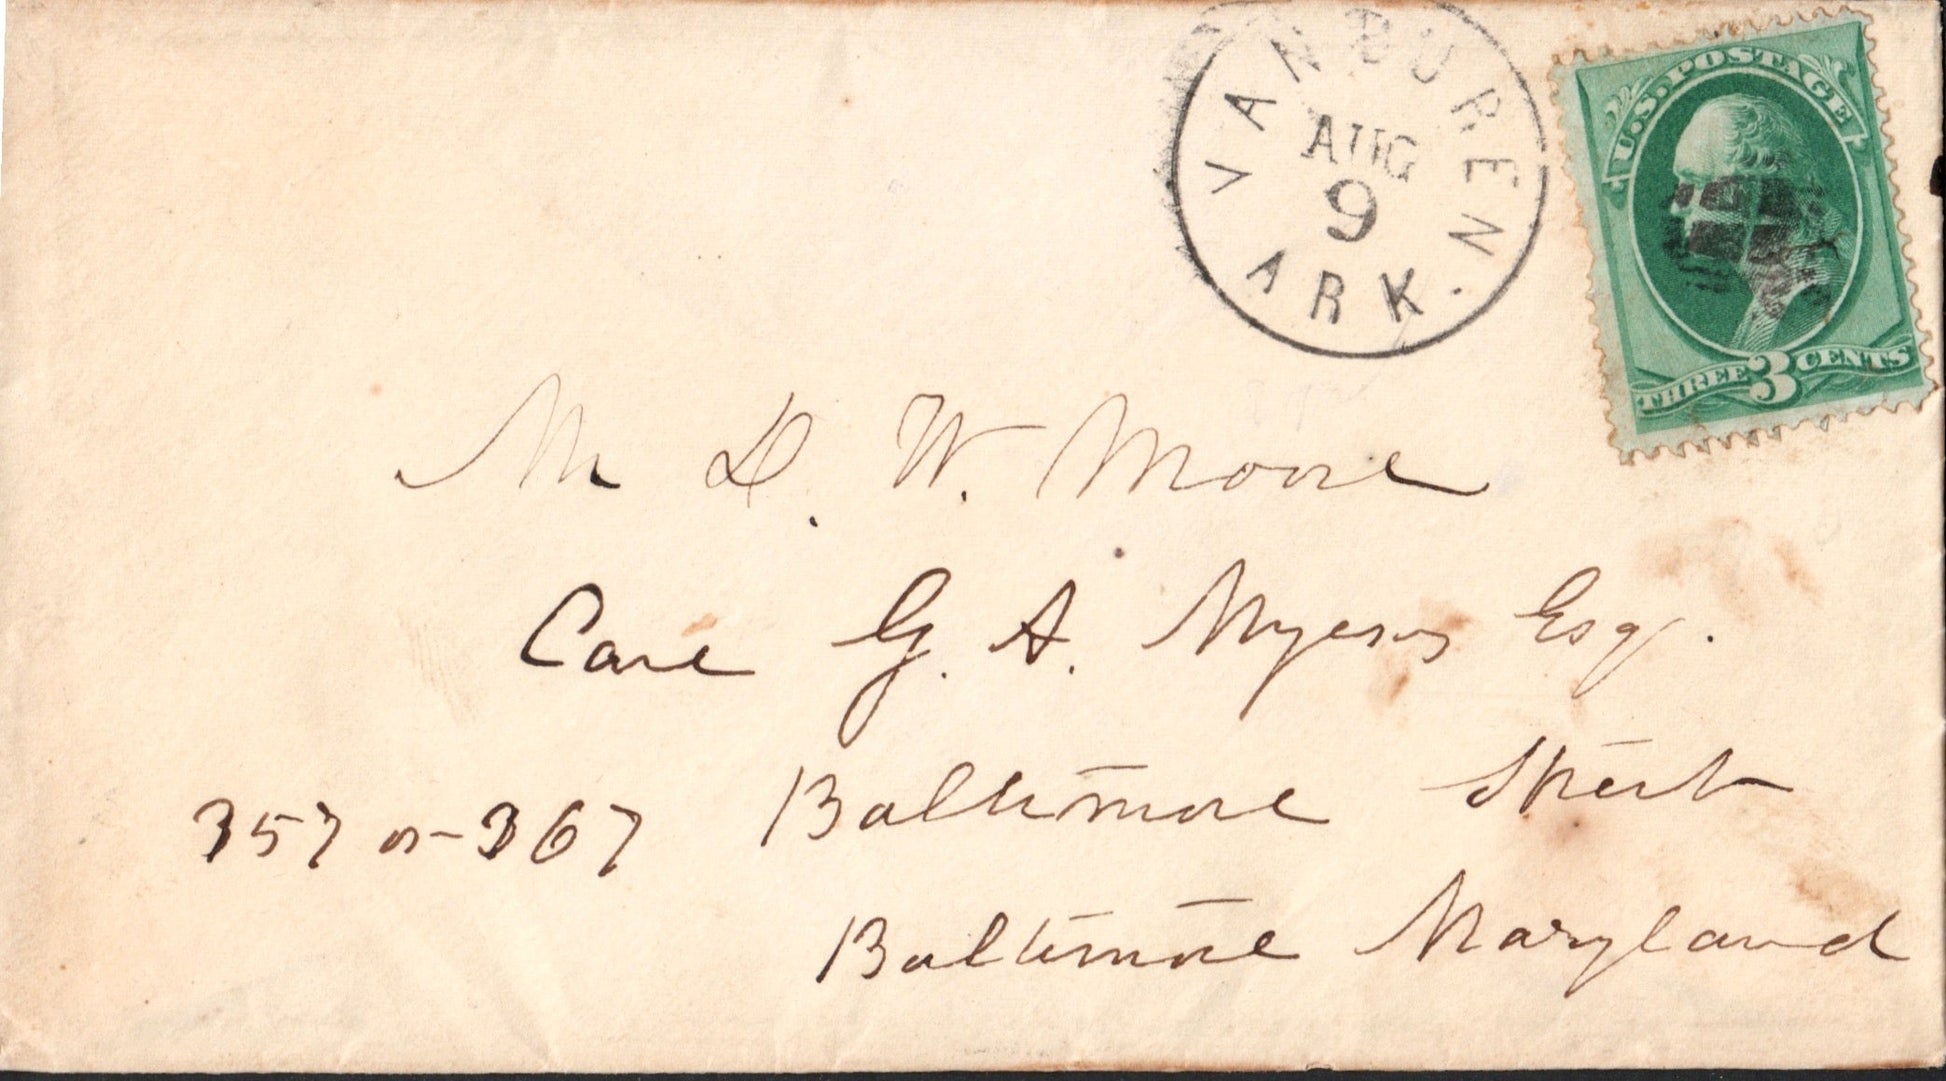 VAN BUREN.
AUG
9
ARK
U.S. POSTAGE
THREE 3 CENTS
Mr D. W. Moore
Care G. A. Myers Esq.
357 or 367 Baltimore Street
Baltimore Maryland